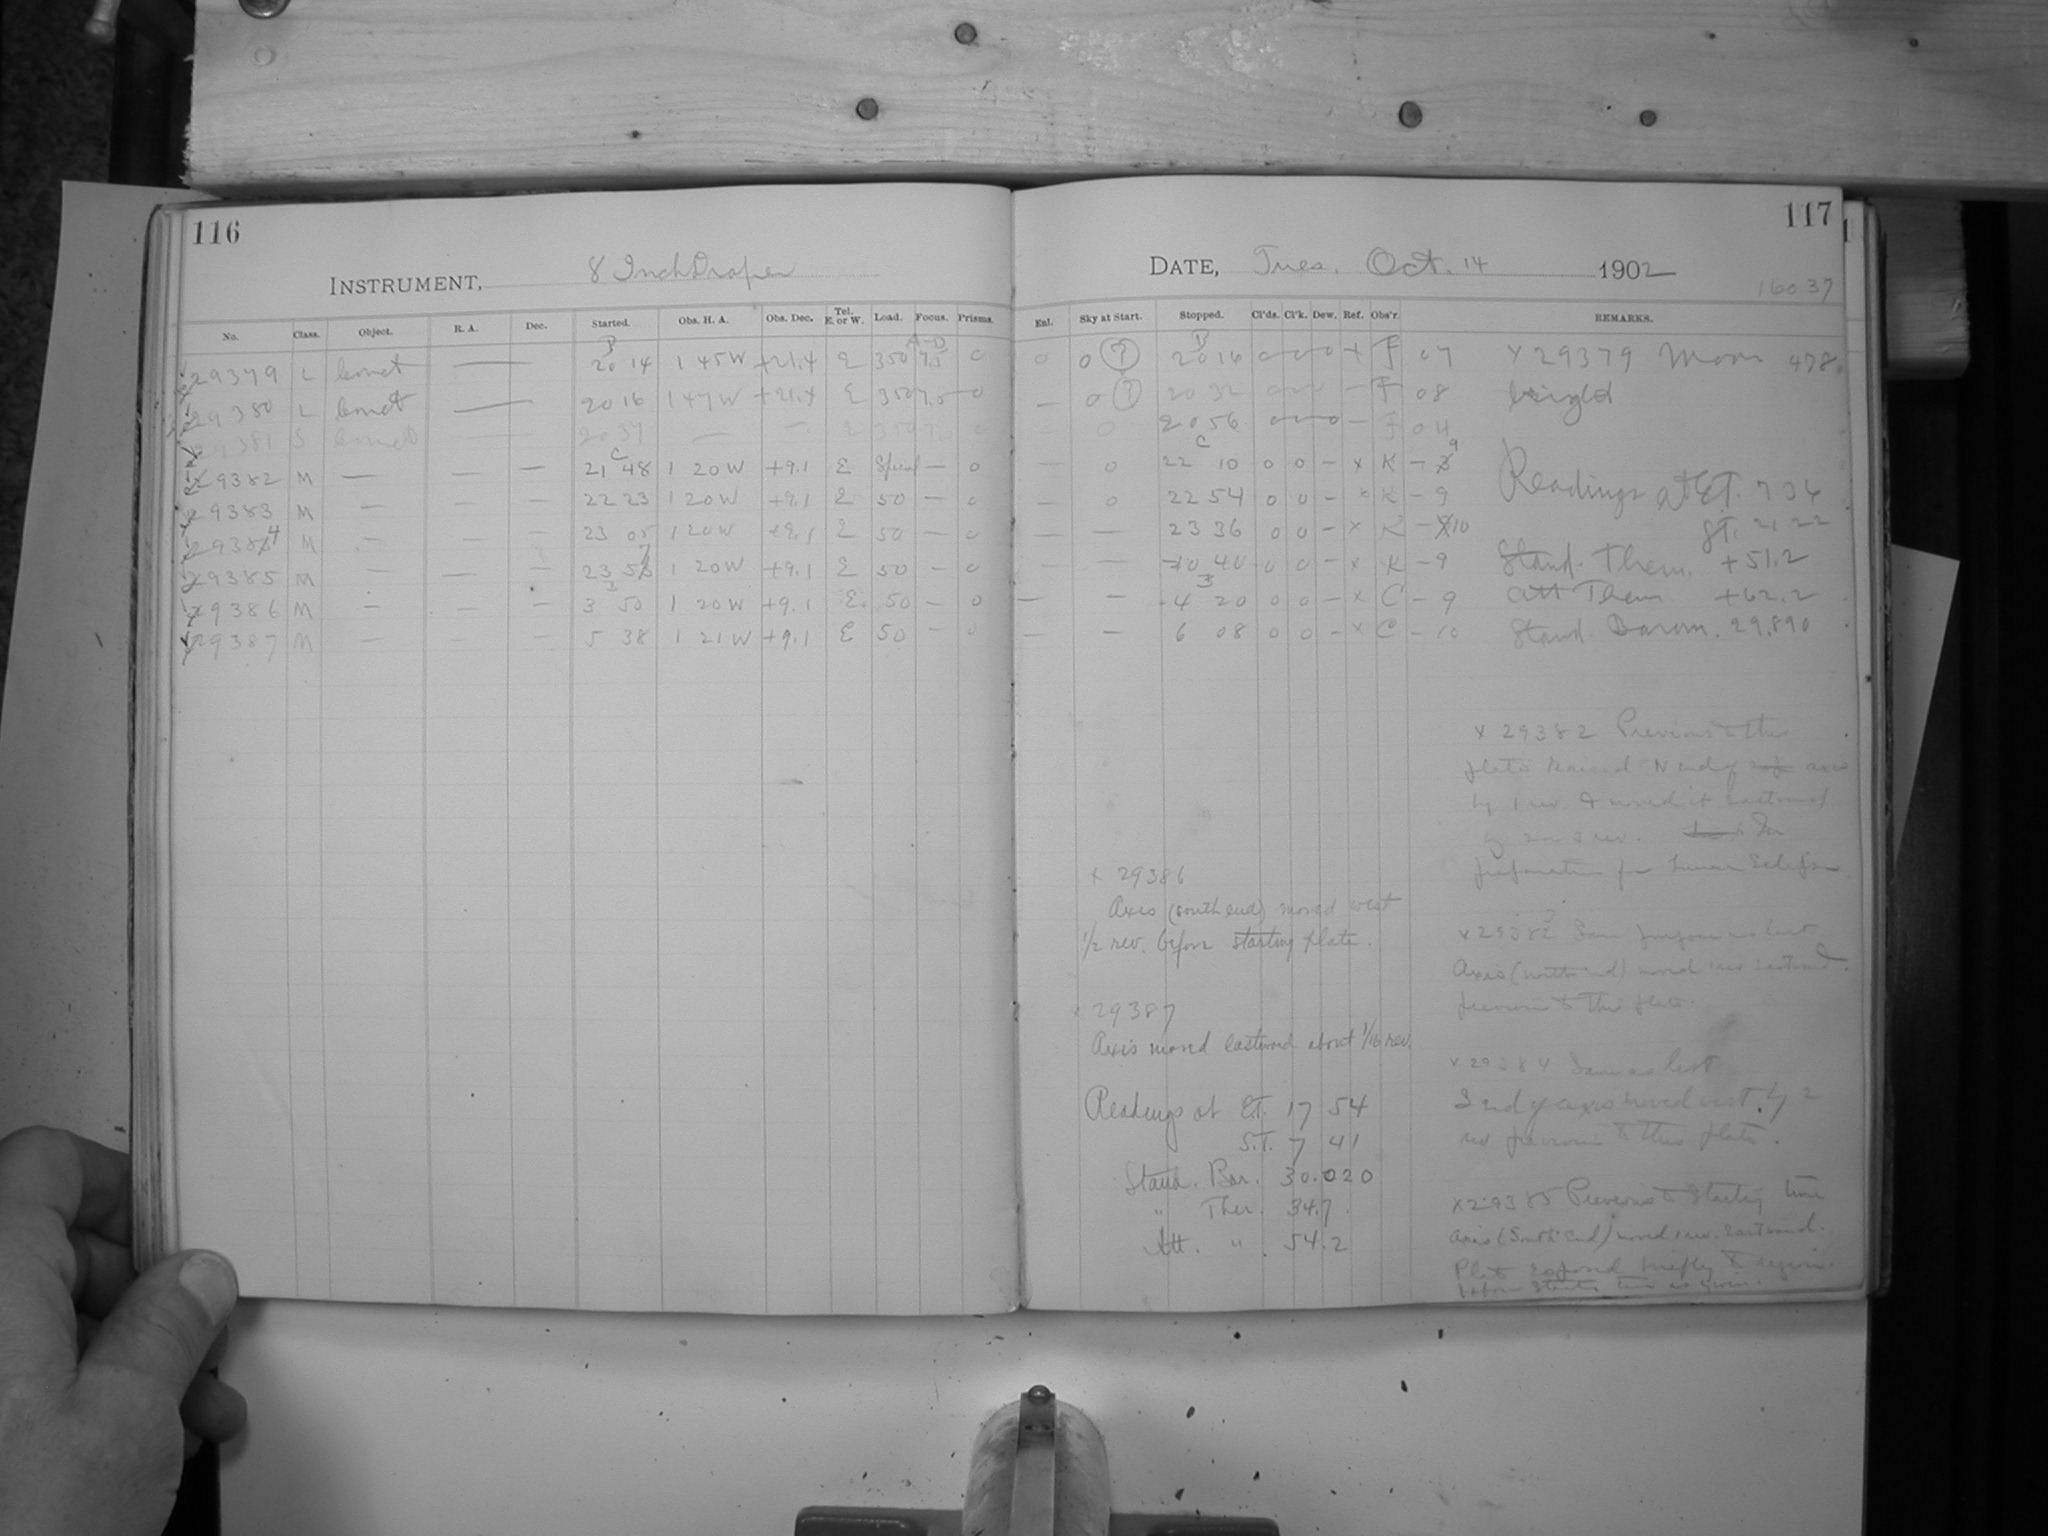 116
INSTRUMENT, 8 Inch Draper
No. Class. Object. R. A. Dec. Started. Obs. H. A. Obs. Dec. Tel. E. or W. Load. Focus. Prisms.
29379 L Comet — B 20 14 1 45 W +21.4 E 350 7.5 0
29380 L Comet — 20 16 1 47 W +21.4 E 350 7.5 0
29381 S Comet — 20 37 — — E 350
29382 M — — — C 21 48 1 20 W +9.1 E Special — 0
29383 M — — — 22 23 1 20 W +9.1 E 50 — 0
29384 M — — — 23 05 1 20 W +9.1 E 50 — 0
29385 M — — — 23 57 1 20 W +9.1 E 50 — 0
29386 M — — — 3 50 1 20 W +9.1 E. 50 — 0
29387 M — — — 5 38 1 21 W +9.1 E 50 — 0
117
DATE, Tues. Oct. 14 1902
16037
Enl. Sky at Start. Stopped. Cl'ds. Cl'k. Dew. Ref. Obs'r. REMARKS.
0 0 (?) B 20 16 0 — 0 x F 07 x 29379 Moon 478.
— 0 (?) 20 32 — F 08 bright
— 0 20 56 — F 04
— 0 C 22 10 0 0 — x K — 9
— 0 22 54 0 0 — x K — 9 Readings at ET. 7 36
— — 23 36 0 0 — x K — 10 ST. 21 22
— — 0 40 0 0 — x K — 9 Stand. Therm. +51.2
— — 4 20 0 0 — x C — 9 Att Therm. +62.2
— — 6 08 0 0 — x C — 10 Stand Barom. 29.890
x 29382 Previous to this
plate raised N end of axis
by 1 rev. & moved it eastward
by rev. for
preparation for Lunar Eclipse
x 29383 Same purpose as last
Axis (north end) moved 1 rev eastward
previous to this plate.
x 29384 Same as last
S end of axis moved west by 2
rev previous to this plate.
x 29385 Previous to starting time
axis (South end) moved 1 rev. eastward.
Plate exposed briefly to region
before starting time as given.
x 29386
Axis (south end) moved west
1/2 rev. before starting plate.
x 29387
Axis moved eastward about 1/16 rev.
Readings at ET. 17 54
S.T. 7 41
Stand. Bar. 30.020
" Ther. 34.7
Att. " 54.2